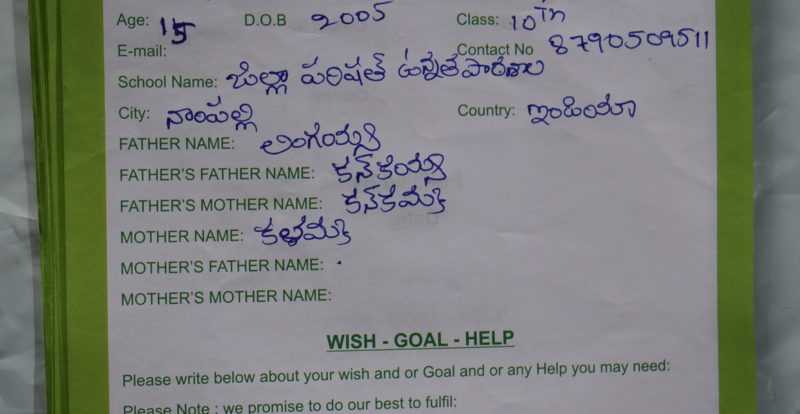 Age: 15 D.O.B 2005 Class: 10th
E-mail: Contact No 8790509511
School Name: జిల్లా పరిషత్ ఉన్నతపాఠశాల
City: నాంపల్లి Country: ఇండియా
FATHER NAME: లింగయ్య
FATHER'S FATHER NAME: కనకయ్య
FATHER'S MOTHER NAME: కనకమ్మ
MOTHER NAME: కళమ్మ
MOTHER'S FATHER NAME:
MOTHER'S MOTHER NAME:
WISH - GOAL - HELP
Please write below about your wish and or Goal and or any Help you may need:
Please Note : we promise to do our best to fulfil: